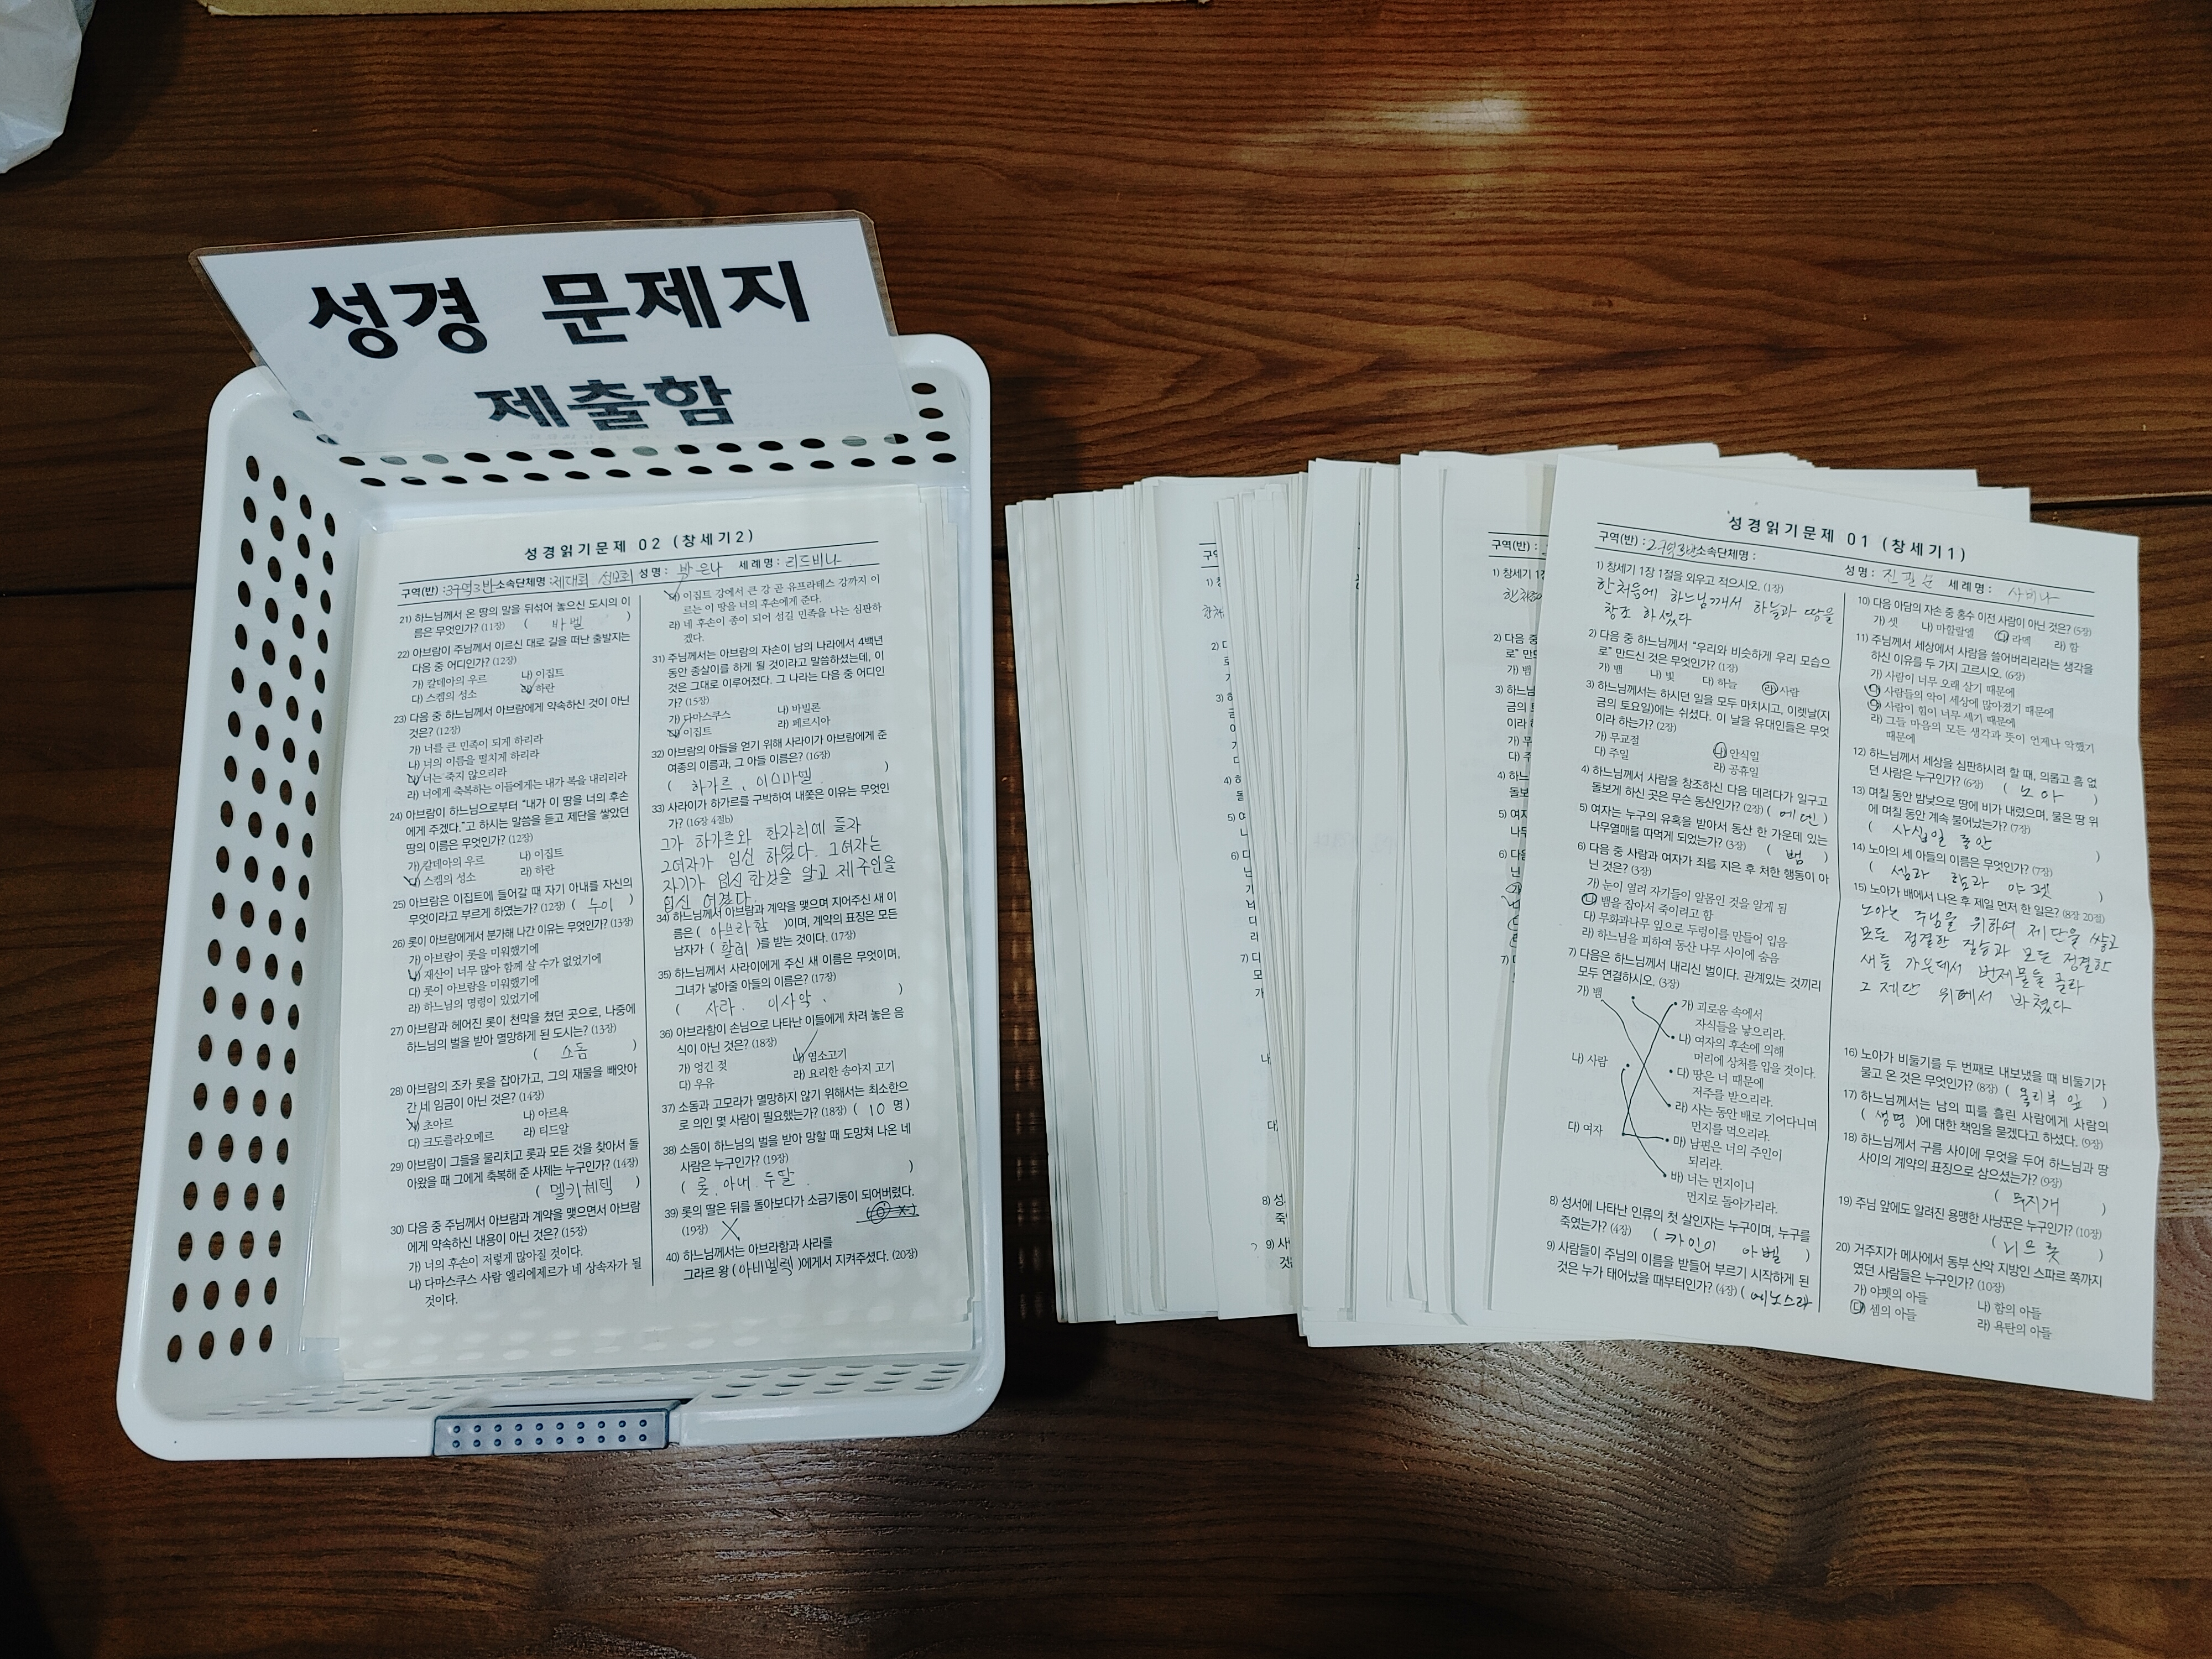 성경 문제지
제출함
성경읽기문제 02 (창세기2)
구역(반) : 3구역3반 소속단체명 : 제대회 성모회 성명 : 박은나 세례명 : 리드비나
21) 하느님께서 온 땅의 말을 뒤섞어 놓으신 도시의 이
름은 무엇인가? (11장) ( 바벨 )
22) 아브람이 주님께서 이르신 대로 길을 떠난 출발지는
다음 중 어디인가? (12장)
가) 칼데아의 우르 나) 이집트
다) 스켐의 성소 라) 하란
23) 다음 중 하느님께서 아브람에게 약속하신 것이 아닌
것은? (12장)
가) 너를 큰 민족이 되게 하리라
나) 너의 이름을 떨치게 하리라
다) 너는 죽지 않으리라
라) 너에게 축복하는 이들에게는 내가 복을 내리리라
24) 아브람이 하느님으로부터 "내가 이 땅을 너의 후손
에게 주겠다."고 하시는 말씀을 듣고 제단을 쌓았던
땅의 이름은 무엇인가? (12장)
가) 칼데아의 우르 나) 이집트
다) 스켐의 성소 라) 하란
25) 아브람은 이집트에 들어갈 때 자기 아내를 자신의
무엇이라고 부르게 하였는가? (12장) ( 누이 )
26) 롯이 아브람에게서 분가해 나간 이유는 무엇인가? (13장)
가) 아브람이 롯을 미워했기에
나) 재산이 너무 많아 함께 살 수가 없었기에
다) 롯이 아브람을 미워했기에
라) 하느님의 명령이 있었기에
27) 아브람과 헤어진 롯이 천막을 쳤던 곳으로, 나중에
하느님의 벌을 받아 멸망하게 된 도시는? (13장)
( 소돔 )
28) 아브람의 조카 롯을 잡아가고, 그의 재물을 빼앗아
간 네 임금이 아닌 것은? (14장)
가) 초아르 나) 아르욕
다) 크도를라오메르 라) 티드알
29) 아브람이 그들을 물리치고 롯과 모든 것을 찾아서 돌
아왔을 때 그에게 축복해 준 사제는 누구인가? (14장)
( 멜키체덱 )
30) 다음 중 주님께서 아브람과 계약을 맺으면서 아브람
에게 약속하신 내용이 아닌 것은? (15장)
가) 너의 후손이 저렇게 많아질 것이다.
나) 다마스쿠스 사람 엘리에제르가 네 상속자가 될
것이다.
다) 이집트 강에서 큰 강 곧 유프라테스 강까지 이
르는 이 땅을 너의 후손에게 준다.
라) 네 후손이 종이 되어 섬길 민족을 나는 심판하
겠다.
31) 주님께서는 아브람의 자손이 남의 나라에서 4백년
동안 종살이를 하게 될 것이라고 말씀하셨는데, 이
것은 그대로 이루어졌다. 그 나라는 다음 중 어디인
가? (15장)
가) 다마스쿠스 나) 바빌론
다) 이집트 라) 페르시아
32) 아브람의 아들을 얻기 위해 사라이가 아브람에게 준
여종의 이름과, 그 아들 이름은? (16장)
( 하가르, 이스마엘 )
33) 사라이가 하가르를 구박하여 내쫓은 이유는 무엇인
가? (16장 4절b)
그가 하가르와 한자리에 들자
그여자가 임신 하였다. 그여자는
자기가 임신한것을 알고 제 주인을
업신 여겼다.
34) 하느님께서 아브람과 계약을 맺으며 지어주신 새 이
름은 ( 아브라함 )이며, 계약의 표징은 모든
남자가 ( 할례 )를 받는 것이다. (17장)
35) 하느님께서 사라이에게 주신 새 이름은 무엇이며,
그녀가 낳아줄 아들의 이름은? (17장)
( 사라. 이사악. )
36) 아브라함이 손님으로 나타난 이들에게 차려 놓은 음
식이 아닌 것은? (18장)
가) 엉긴 젖 나) 염소고기
다) 우유 라) 요리한 송아지 고기
37) 소돔과 고모라가 멸망하지 않기 위해서는 최소한으
로 의인 몇 사람이 필요했는가? (18장) ( 10 명)
38) 소돔이 하느님의 벌을 받아 망할 때 도망쳐 나온 네
사람은 누구인가? (19장)
( 롯, 아내, 두딸 )
39) 롯의 딸은 뒤를 돌아보다가 소금기둥이 되어버렸다.
(19장) X
40) 하느님께서는 아브라함과 사라를
그라르 왕 (아비멜렉)에게서 지켜주셨다. (20장)
성경읽기문제 01 (창세기1)
구역(반) : 2구역3반 소속단체명 : 성명 : 진필순 세례명 : 사비나
1) 창세기 1장 1절을 외우고 적으시오. (1장)
한처음에 하느님께서 하늘과 땅을
창조 하셨다
2) 다음 중 하느님께서 "우리와 비슷하게 우리 모습으
로" 만드신 것은 무엇인가? (1장)
가) 뱀 나) 빛 다) 하늘 라) 사람
3) 하느님께서는 하시던 일을 모두 마치시고, 이렛날(지
금의 토요일)에는 쉬셨다. 이 날을 유대인들은 무엇
이라 하는가? (2장)
가) 무교절 나) 안식일
다) 주일 라) 공휴일
4) 하느님께서 사람을 창조하신 다음 데려다가 일구고
돌보게 하신 곳은 무슨 동산인가? (2장) ( 에덴 )
5) 여자는 누구의 유혹을 받아서 동산 한 가운데 있는
나무열매를 따먹게 되었는가? (3장) ( 뱀 )
6) 다음 중 사람과 여자가 죄를 지은 후 처한 행동이 아
닌 것은? (3장)
가) 눈이 열려 자기들이 알몸인 것을 알게 됨
나) 뱀을 잡아서 죽이려고 함
다) 무화과나무 잎으로 두렁이를 만들어 입음
라) 하느님을 피하여 동산 나무 사이에 숨음
7) 다음은 하느님께서 내리신 벌이다. 관계있는 것끼리
모두 연결하시오. (3장)
가) 뱀 가) 괴로움 속에서
자식들을 낳으리라.
나) 여자의 후손에 의해
머리에 상처를 입을 것이다.
나) 사람 다) 땅은 너 때문에
저주를 받으리라.
라) 사는 동안 배로 기어다니며
먼지를 먹으리라.
다) 여자 마) 남편은 너의 주인이
되리라.
바) 너는 먼지이니
먼지로 돌아가리라.
8) 성서에 나타난 인류의 첫 살인자는 누구이며, 누구를
죽였는가? (4장) ( 카인이 아벨 )
9) 사람들이 주님의 이름을 받들어 부르기 시작하게 된
것은 누가 태어났을 때부터인가? (4장) ( 에노스라
10) 다음 아담의 자손 중 홍수 이전 사람이 아닌 것은? (5장)
가) 셋 나) 마할랄엘 다) 라멕 라) 함
11) 주님께서 세상에서 사람을 쓸어버리리라는 생각을
하신 이유를 두 가지 고르시오. (6장)
가) 사람이 너무 오래 살기 때문에
나) 사람들의 악이 세상에 많아졌기 때문에
다) 사람이 힘이 너무 세기 때문에
라) 그들 마음의 모든 생각과 뜻이 언제나 악했기
때문에
12) 하느님께서 세상을 심판하시려 할 때, 의롭고 흠 없
던 사람은 누구인가? (6장) ( 노아 )
13) 며칠 동안 밤낮으로 땅에 비가 내렸으며, 물은 땅 위
에 며칠 동안 계속 불어났는가? (7장)
( 사십일 동안 )
14) 노아의 세 아들의 이름은 무엇인가? (7장)
( 셈과 함과 야펫 )
15) 노아가 배에서 나온 후 제일 먼저 한 일은? (8장 20절)
노아는 주님을 위하여 제단을 쌓고
모든 정결한 짐승과 모든 정결한
새들 가운데서 번제물을 골라
그 제단 위에서 바쳤다
16) 노아가 비둘기를 두 번째로 내보냈을 때 비둘기가
물고 온 것은 무엇인가? (8장) ( 올리브 잎 )
17) 하느님께서는 남의 피를 흘린 사람에게 사람의
( 생명 )에 대한 책임을 묻겠다고 하셨다. (9장)
18) 하느님께서 구름 사이에 무엇을 두어 하느님과 땅
사이의 계약의 표징으로 삼으셨는가? (9장)
( 무지개 )
19) 주님 앞에도 알려진 용맹한 사냥꾼은 누구인가? (10장)
( 니므롯 )
20) 거주지가 메사에서 동부 산악 지방인 스파르 쪽까지
였던 사람들은 누구인가? (10장)
가) 야펫의 아들 나) 함의 아들
다) 셈의 아들 라) 욕탄의 아들